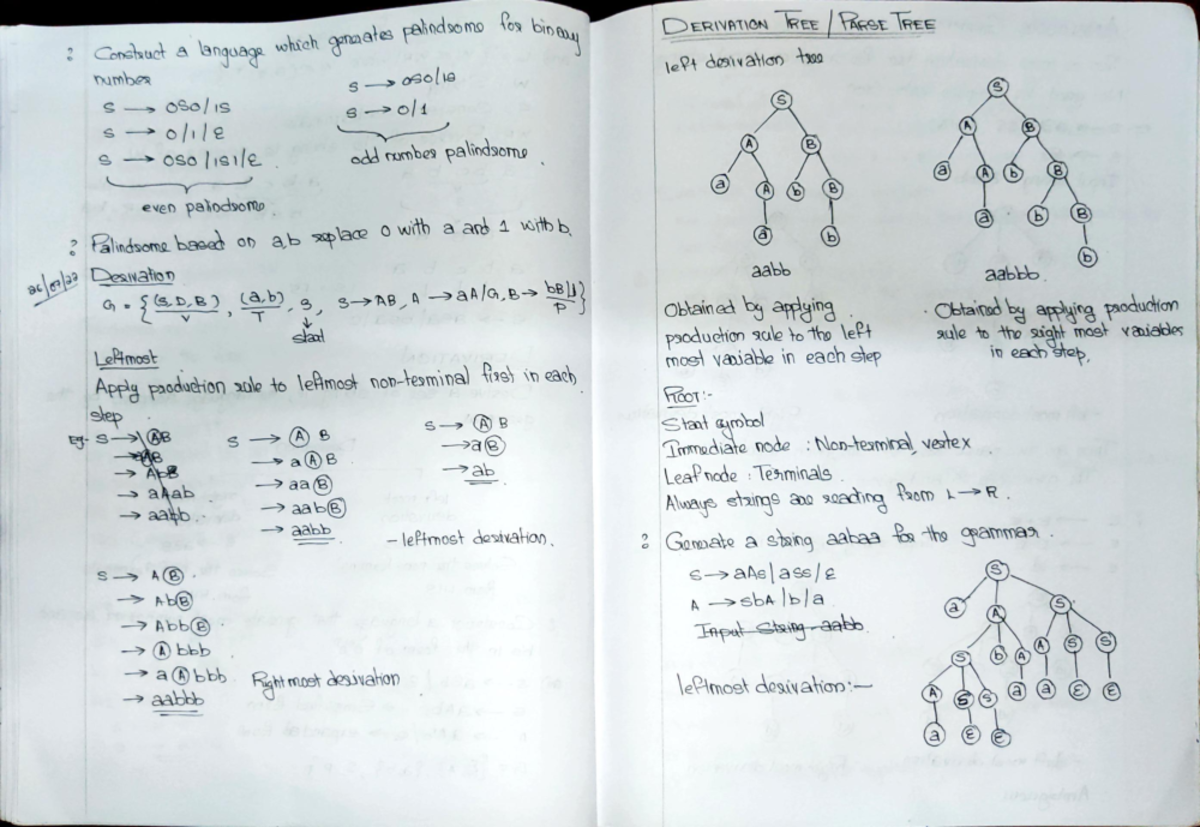 ? Construct a language which generates palindrome for binary
number
S → 0S0/1S
S → 0/1/ε
S → 0S0/1S1/ε
even palindrome
S → 0S0/1S
S → 0/1
odd number palindrome.
? Palindrome based on a,b replace 0 with a and 1 with b.
26/07/22
Derivation
G = {(S, D, B), (a, b), S, S → AB, A → aA/a, B → bB/b}
V T P
start
Leftmost
Apply production rule to leftmost non-terminal first in each
step.
Eg- S → AB
→ AbB
→ aAab
→ aabb
S → A B
→ a A B
→ aa B
→ aab B
→ aabb
S → A B
→ a B
→ ab
- leftmost derivation.
S → A B
→ Ab B
→ Abb B
→ A bbb
→ a A bbb
→ aabbb
Right most derivation
DERIVATION TREE / PARSE TREE
left derivation tree
S
A B
a A b B
a b
aabb
S
A B
a A b B
a b B
b
aabbb.
Obtained by applying
production rule to the left
most variable in each step
Obtained by applying production
rule to the right most variables
in each step,
ROOT:-
Start symbol
Immediate node : Non-terminal, vertex
Leaf node : Terminals.
Always strings are reading from L → R.
? Generate a string aabaa for the grammar.
S → aAs/ass/ε
A → sbA/b/a
Input String - aabb
leftmost derivation:-
S
a A S
S b A A S S
A S S a a ε ε
a ε ε